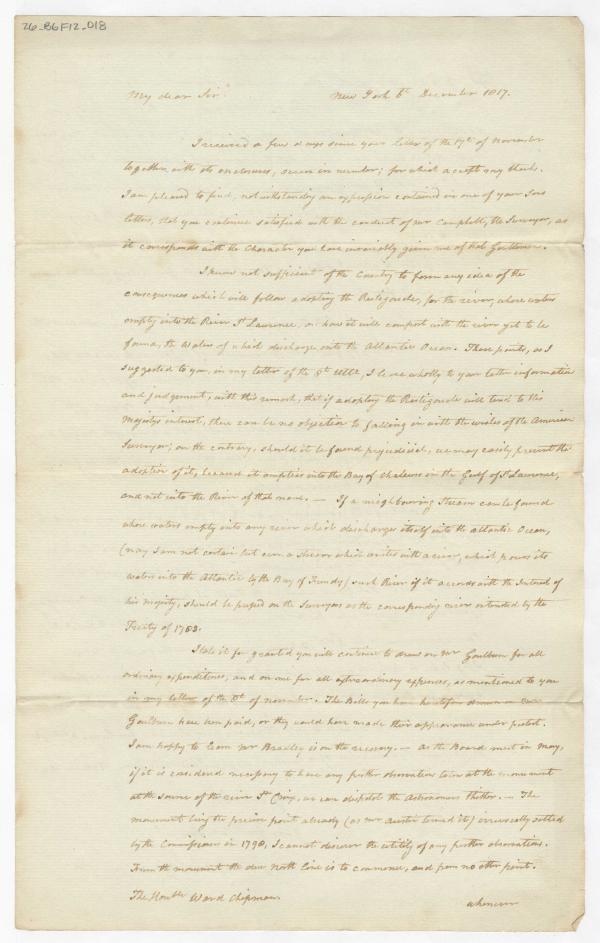 26-B6F12-018
My dear Sir
New York 6th December 1817.
I received a few days since your letter of the 17th of November
together with its enclosures, seven in number; for which accept my thanks.
I am pleased to find, notwithstanding an expression contained in one of your Sons
letters, that you continue satisfied with the conduct of Mr Campbell, the Surveyor, as
it corresponds with the Character you have invariably given me of that Gentleman.
I know not sufficient of the Country to form any idea of the
consequences which will follow adopting the Restigouche, for the river, whose waters
empty into the River St Lawrence, or how it will comport with the river yet to be
found, the Waters of which discharge into the Atlantic Ocean. These points, as I
suggested to you, in my letter of the 8th Ulto, I leave wholly to your better information
and judgement, with this remark, that if adopting the Restigouche will tend to His
Majestys interest, there can be no objection to falling in with the wishes of the American
Surveyor; on the contrary, should it be found prejudicial, we may easily prevent the
adoption of it, because it empties into the Bay of Chaleurs in the Gulf of St Lawrence,
and not into the River of that name. — If a neighbouring Stream can be found
whose waters empty into any river which discharges itself into the Atlantic Ocean,
(nay I am not certain but even a Stream which unites with a river, which pours its
waters into the Atlantic by the Bay of Fundy) such River if it accords with the Interest of
his Majesty, should be pressed on the Surveyors as the corresponding river intended by the
Treaty of 1783.
I take it for granted you will continue to draw on Mr Goulburn for all
ordinary expenditures, and on me for all extraordinary expenses, as mentioned to you
in my letter of the 8th of November. The Bills you have heretofore drawn on Mr
Goulburn have been paid, or they would have made their appearance under protest.
I am happy to learn Mr Bradley is on the recovery. — As the Board meet in May,
if it is considered necessary to have any further observation taken at the monument
at the source of the river St Croix, we can dispatch the Astronomers thither. — The
monument being the precise point already (as Mr Austin termed it) irrevocably settled
by the Commissioners in 1798, I cannot discover the utility of any further observations.
From the monument the due North line is to commence, and from no other point.
The Honble Ward Chipman.
whenever